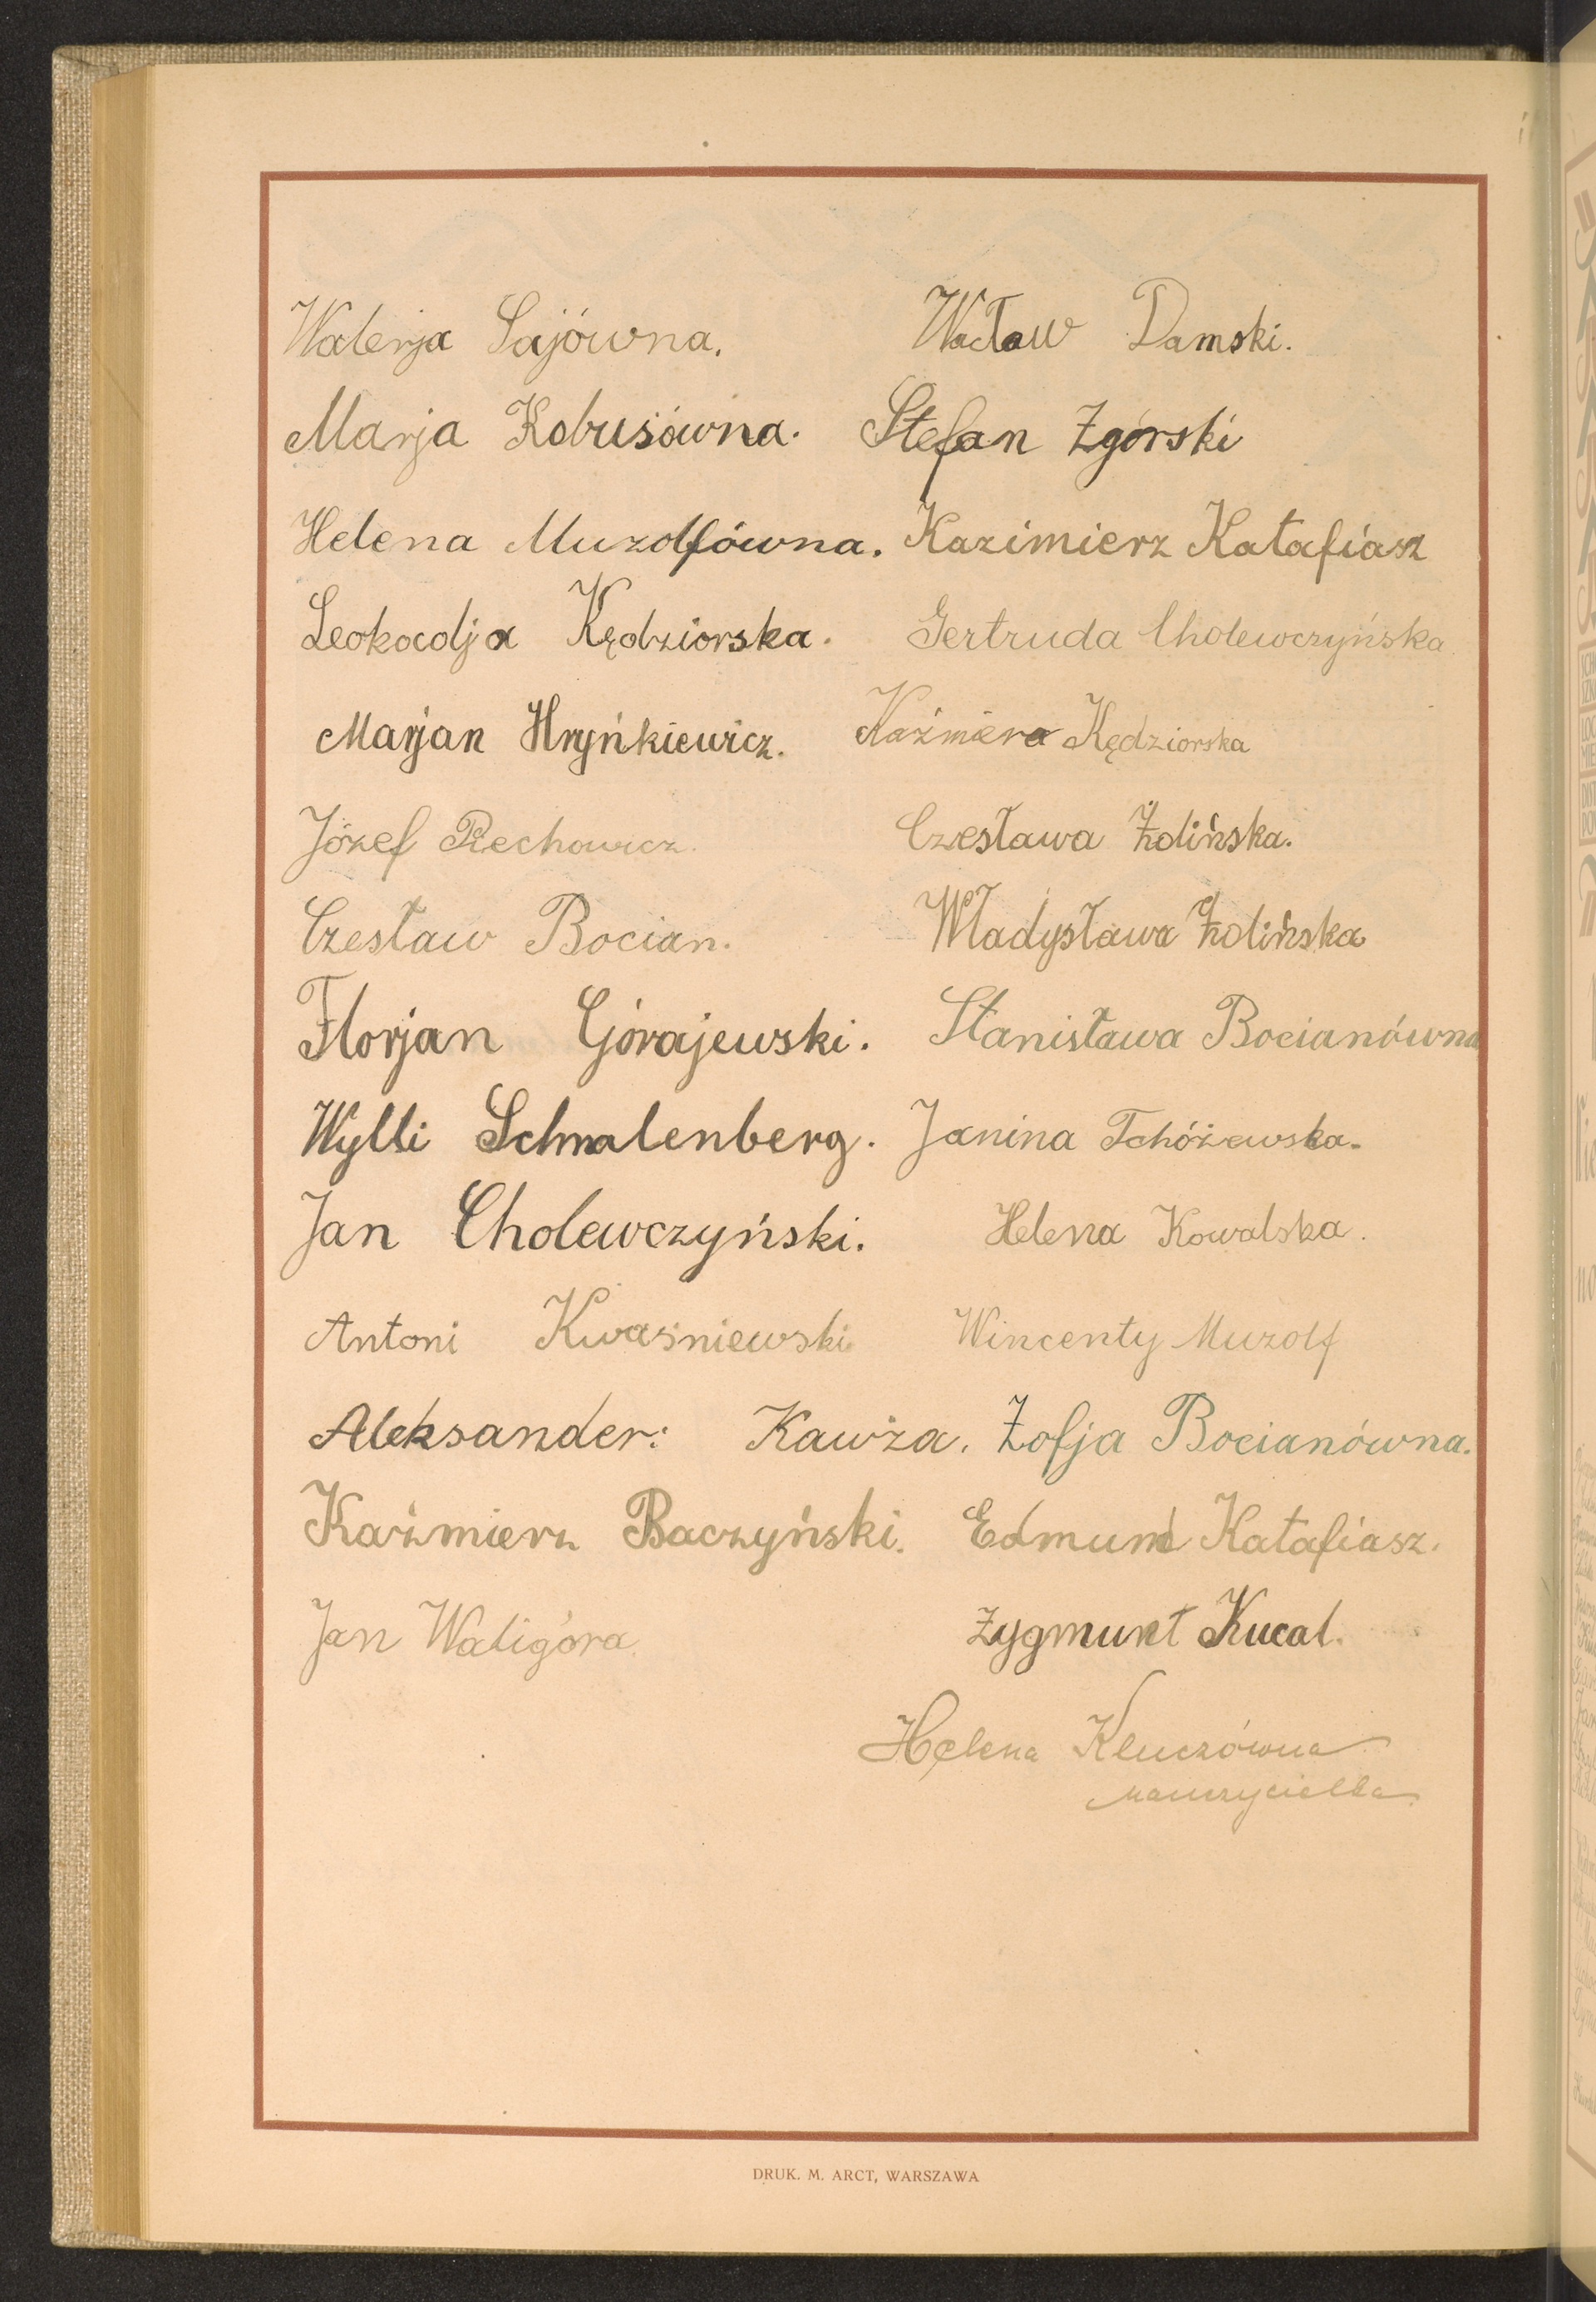 Walerja Sajówna. Wacław Damski.
Marja Kobusówna. Stefan Zgórski
Helena Muzolfówna. Kazimierz Katafiasz
Leokocdja Kędziorska. Gertruda Cholewczyńska.
Marjan Hryńkiewicz. Kaźmiera Kędziorska
Józef Piechowicz. Czesława Żolińska.
Czesław Bocian. Władysława Żolińska
Florjan Górajewski. Stanisława Bocianówna
Wylli Schmalenberg. Janina Tchóżewska.
Jan Cholewczyński. Helena Kowalska.
Antoni Kwaśniewski Wincenty Muzolf
Aleksander: Kawża. Zofja Bocianówna.
Kaźmierz Baczyński. Edmund Katafiasz.
Jan Waligóra. Zygmunt Kucal.
Helena Kluczówna
nauczycielka
DRUK. M. ARCT, WARSZAWA